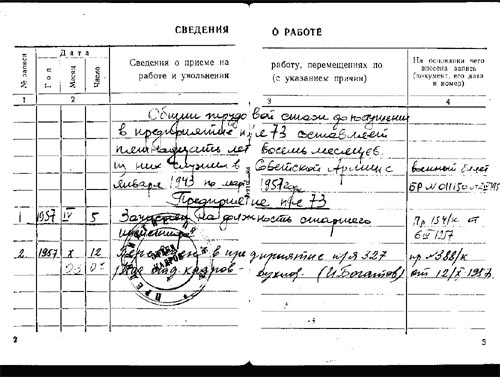 СВЕДЕНИЯ О РАБОТЕ
№ записи
Дата
Год
Месяц
Число
Сведения о приеме на
работе и увольнении
работу, перемещениях по
(с указанием причин)
На основании чего
внесена запись
(документ, его дата
и номер)
1 2 3 4
Общий трудовой стаж до поступления
в предприятие п/я 73 составляет
пятнадцать лет восемь месяцев.
из них служил в Советской Армии с
января 1943 по март 1957 года
военный билет
Предприятие п/я 73
1 1957 IV 5 Зачислен на должность старшего
Пр 154/к от
1957
2 1957 X 12 в предприятие п/я 327
пр №388/к
от 12/X 1957
2
3